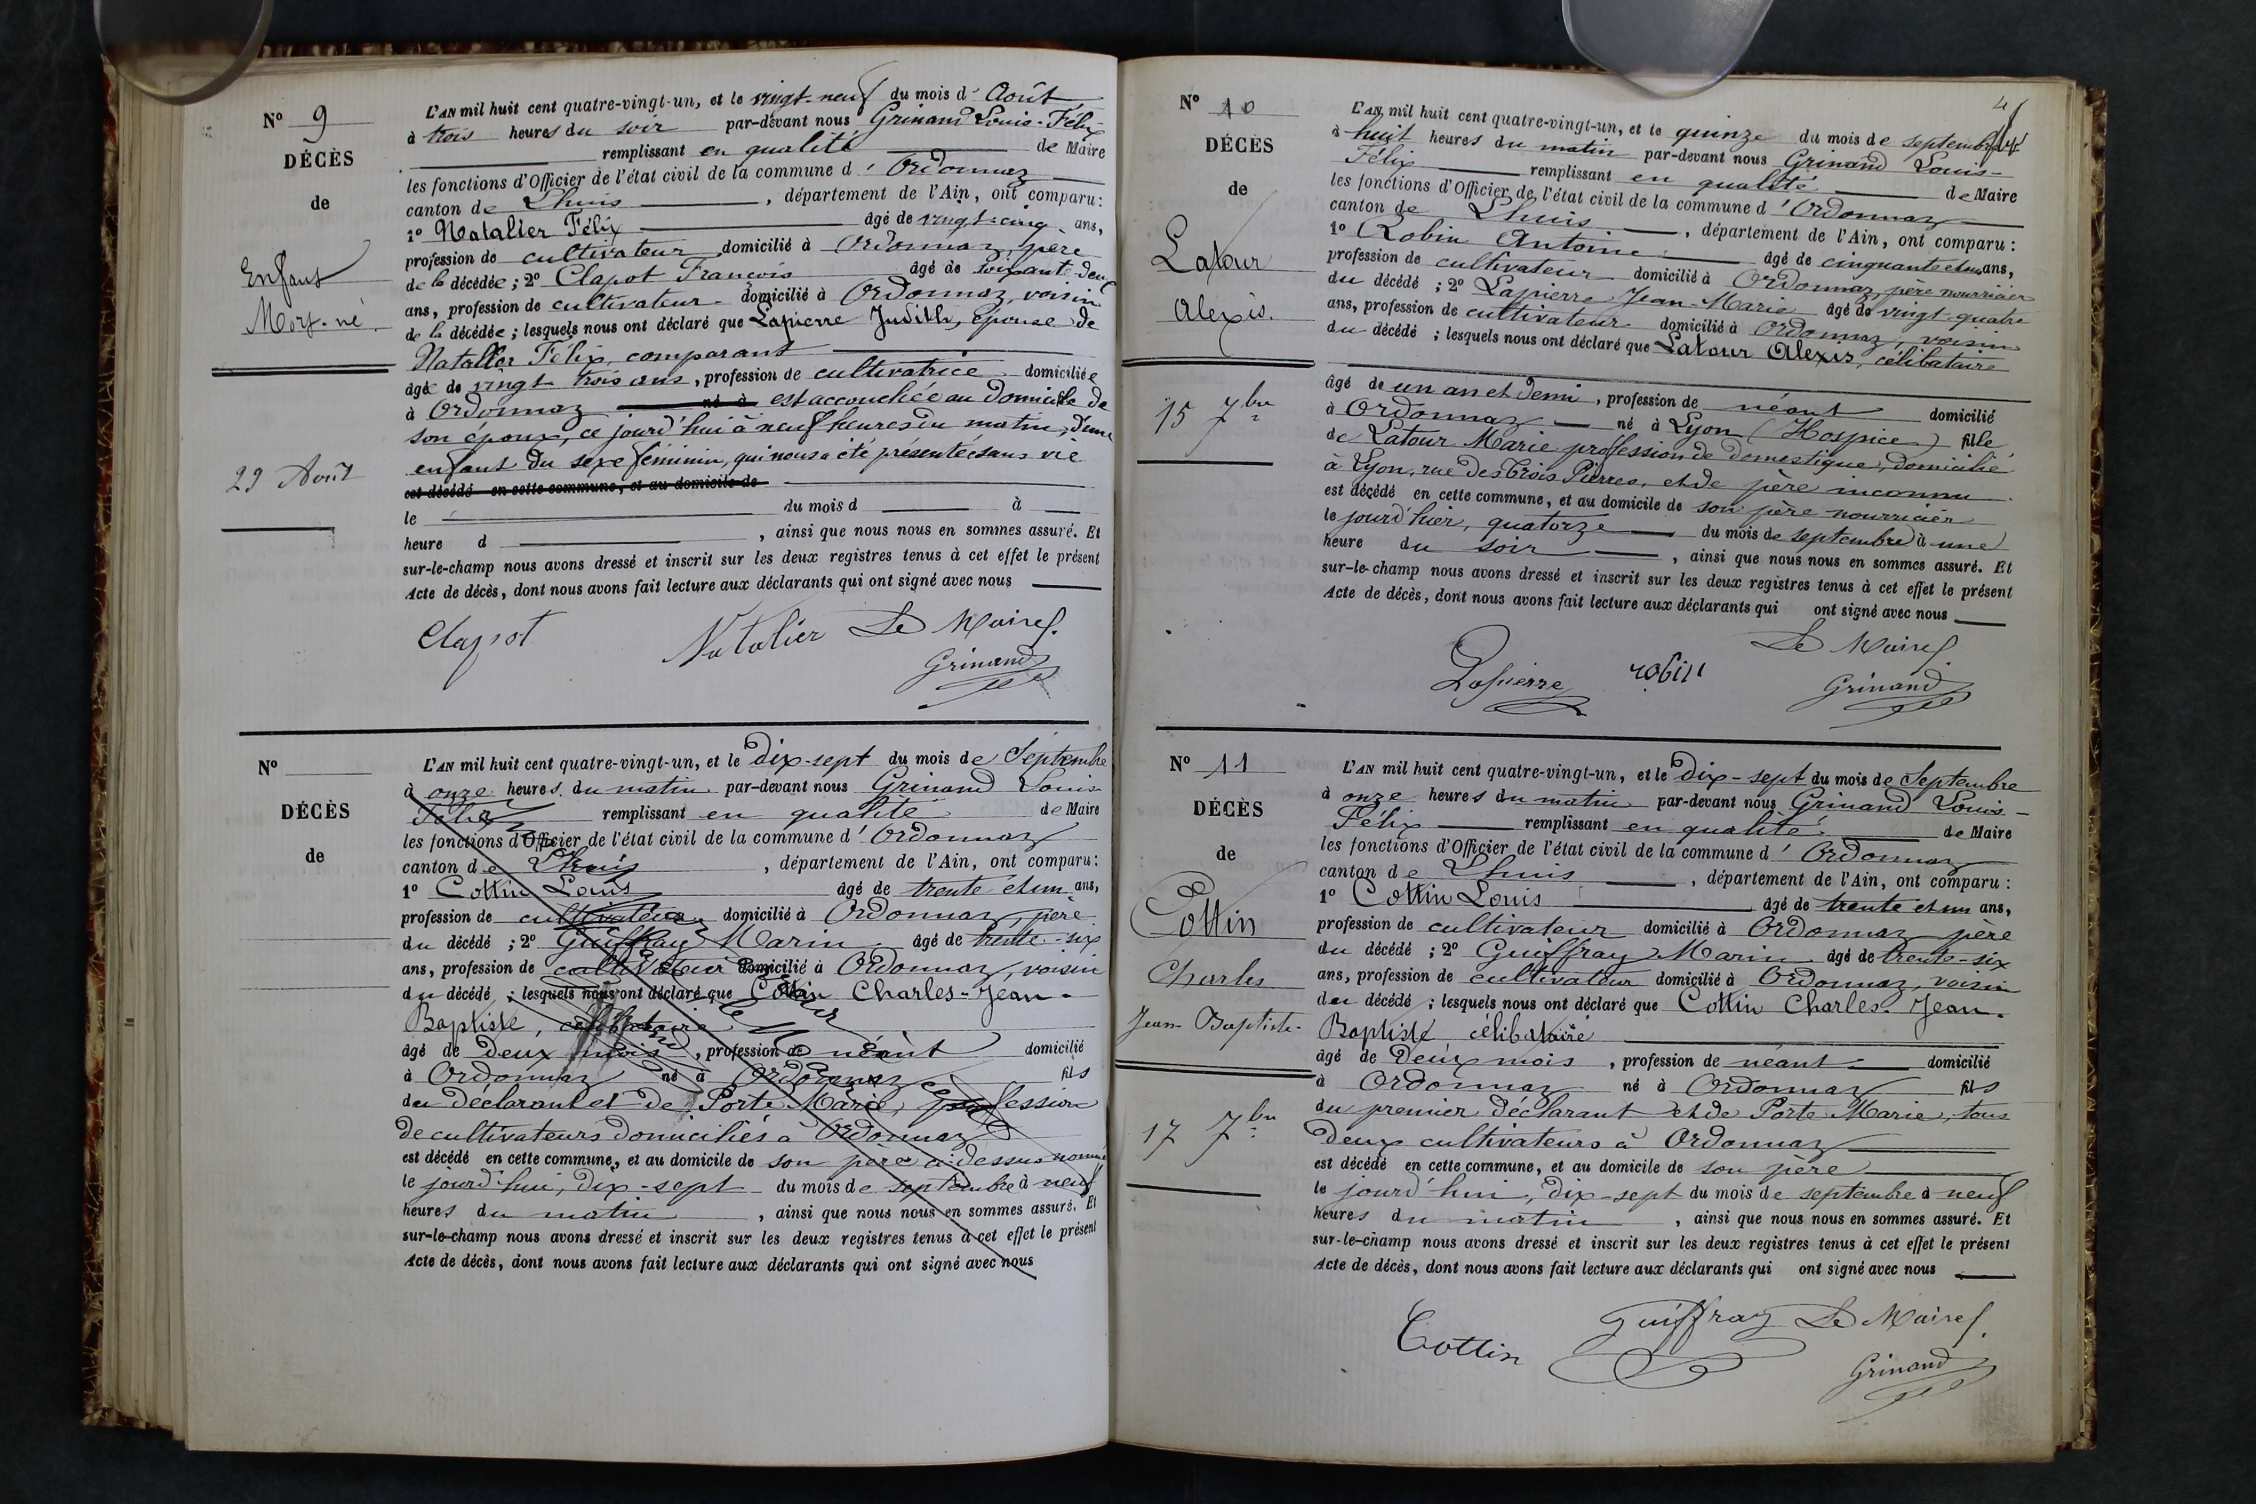 N° 9
DÉCÈS
de
Enfant
Mort-né
29 Août
L'AN mil huit cent quatre-vingt-un, et le vingt-neuf du mois d' Août
à trois heures du soir par-devant nous Grinand Louis-Félix
remplissant en qualité de Maire
les fonctions d'Officier de l'état civil de la commune d' Ordonnaz
canton de Lhuis, département de l'Ain, ont comparu:
1° Natallier Félix âgé de vingt-cinq ans,
profession de cultivateur domicilié à Ordonnaz, père
de la décédée; 2° Clapot François âgé de soixante-deux
ans, profession de cultivateur domicilié à Ordonnaz, voisin
de la décédée; lesquels nous ont déclaré que Lapierre Judith, épouse de
Natallier Félix, comparant
âgée de vingt trois ans, profession de cultivatrice domiciliée
à Ordonnaz né à est accouchée au domicile de
son époux, ce jourd'hui à neuf heures du matin, d'une
enfant du sexe féminin, qui nous a été présentée sans vie
est décédé en cette commune, et au domicile de
le du mois d à
heure d, ainsi que nous nous en sommes assuré. Et
sur-le-champ nous avons dressé et inscrit sur les deux registres tenus à cet effet le présent
Acte de décès, dont nous avons fait lecture aux déclarants qui ont signé avec nous
Clapot Natalier Le Maire
Grinand
N°
DÉCÈS
de
L'AN mil huit cent quatre-vingt-un, et le Dix-sept du mois de Septembre
à onze heures du matin par-devant nous Grinand Louis-
Félix remplissant en qualité de Maire
les fonctions d'Officier de l'état civil de la commune d' Ordonnaz
canton de Lhuis, département de l'Ain, ont comparu:
1° Cottin Louis âgé de trente et un ans,
profession de cultivateur domicilié à Ordonnaz, père
du décédé; 2° Guiffray Marin âgé de trente-six
ans, profession de cultivateur domicilié à Ordonnaz, voisin
du décédé; lesquels nous ont déclaré que Cottin Charles-Jean-
Baptiste, célibataire
âgé de deux mois, profession de néant domicilié
à Ordonnaz né à Ordonnaz fils
du déclarant et de Porte Marie, profession
de cultivateurs domiciliés à Ordonnaz
est décédé en cette commune, et au domicile de son père ci-dessus nommé
le jourd'hui, dix-sept du mois de septembre à neuf
heures du matin, ainsi que nous nous en sommes assuré. Et
sur-le-champ nous avons dressé et inscrit sur les deux registres tenus à cet effet le présent
Acte de décès, dont nous avons fait lecture aux déclarants qui ont signé avec nous
N° 10
DÉCÈS
de
Latour
Alexis.
15 7bre
L'AN mil huit cent quatre-vingt-un, et le quinze du mois de septembre
à huit heures du matin par-devant nous Grinand Louis-
Félix remplissant en qualité de Maire
les fonctions d'Officier de l'état civil de la commune d' Ordonnaz
canton de Lhuis, département de l'Ain, ont comparu:
1° Robin Antoine âgé de cinquante et un ans,
profession de cultivateur domicilié à Ordonnaz, père nourricier
du décédé; 2° Lapierre Jean-Marie âgé de vingt-quatre
ans, profession de cultivateur domicilié à Ordonnaz, voisin
du décédé; lesquels nous ont déclaré que Latour Alexis, célibataire
âgé de un an et demi, profession de néant domicilié
à Ordonnaz né à Lyon (Hospice) fils
de Latour Marie profession de domestique, domicilié
à Lyon, rue des Trois Pierres, et de père inconnu
est décédé en cette commune, et au domicile de son père nourricier
le jourd'hier, quatorze du mois de septembre à une
heure du soir, ainsi que nous nous en sommes assuré. Et
sur-le-champ nous avons dressé et inscrit sur les deux registres tenus à cet effet le présent
Acte de décès, dont nous avons fait lecture aux déclarants qui ont signé avec nous
Lapierre robin Le Maire
Grinand
N° 11
DÉCÈS
de
Cottin
Charles
Jean-Baptiste-
17 7bre
L'AN mil huit cent quatre-vingt-un, et le Dix-sept du mois de Septembre
à onze heures du matin par-devant nous Grinand Louis-
Félix remplissant en qualité de Maire
les fonctions d'Officier de l'état civil de la commune d' Ordonnaz
canton de Lhuis, département de l'Ain, ont comparu:
1° Cottin Louis âgé de trente et un ans,
profession de cultivateur domicilié à Ordonnaz père
du décédé; 2° Guiffray Marin âgé de trente-six
ans, profession de cultivateur domicilié à Ordonnaz, voisin
du décédé; lesquels nous ont déclaré que Cottin Charles-Jean-
Baptiste célibataire
âgé de Deux mois, profession de néant domicilié
à Ordonnaz né à Ordonnaz fils
du premier déclarant et de Porte Marie, tous
deux cultivateurs à Ordonnaz
est décédé en cette commune, et au domicile de son père
le jourd'hui, dix-sept du mois de septembre à neuf
heures du matin, ainsi que nous nous en sommes assuré. Et
sur-le-champ nous avons dressé et inscrit sur les deux registres tenus à cet effet le présent
Acte de décès, dont nous avons fait lecture aux déclarants qui ont signé avec nous
Cottin Guiffray Le Maire
Grinand